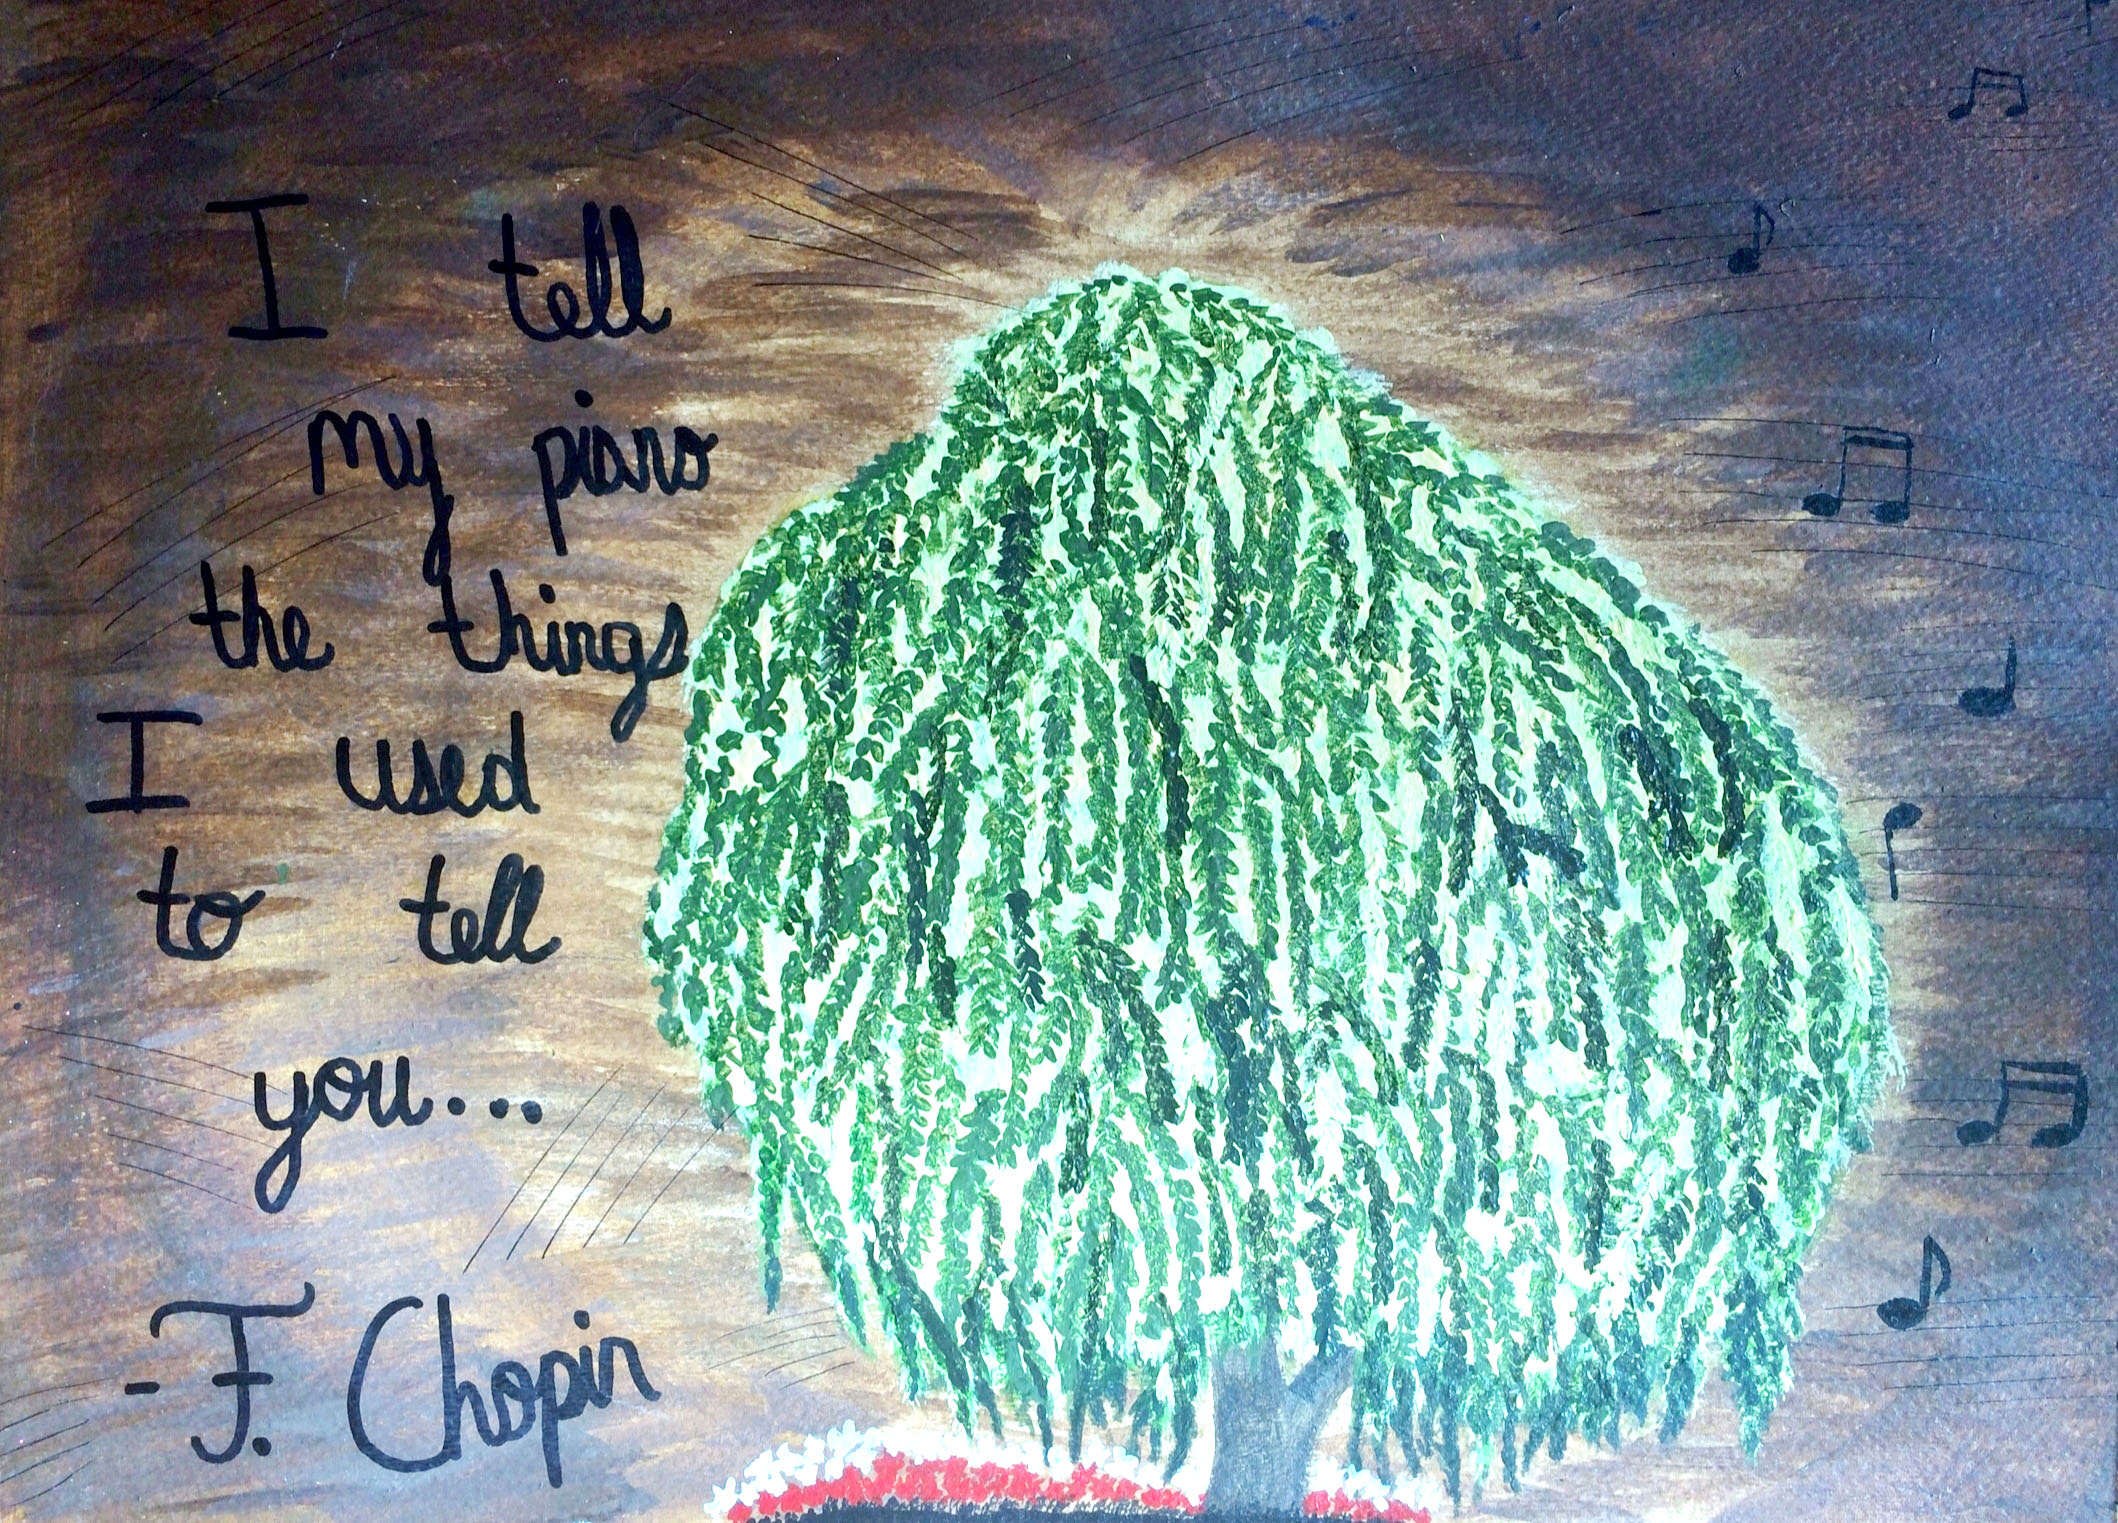 I tell
my piano
the things
I used
to tell
you...
-F. Chopin